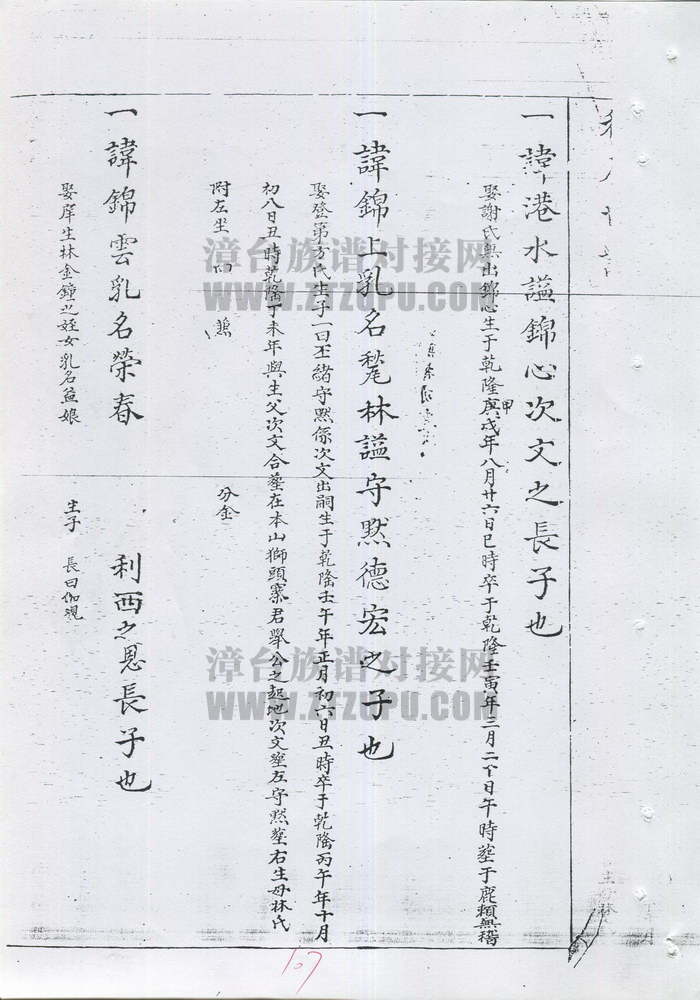 一諱港水謚錦心次文之長子也
娶謝氏無出錦心生于乾隆庚戌年八月廿六日巳時卒于乾隆壬寅年三月二个日午時塟于鹿頼無稽
甲
一諱錦上乳名髦林謚守黙德宏之子也
娶登第方氏生子一曰丕緒守黙係次文出嗣生于乾隆壬午年正月初六日丑時卒于乾隆丙午年十月
初八日丑時乾隆丁未年與生父次文合塟在本山獅頭寨君舉公之起地次文塟左守黙塟右生母林氏
附左坐 兼 分金
一諱錦雲乳名榮春 利西之恩長子也
娶庠生林金鐘之姪女乳名益娘 生子 長曰
漳台族谱对接网
WWW.ZTZUPU.COM
漳台族谱对接网
WWW.ZTZUPU.COM
107